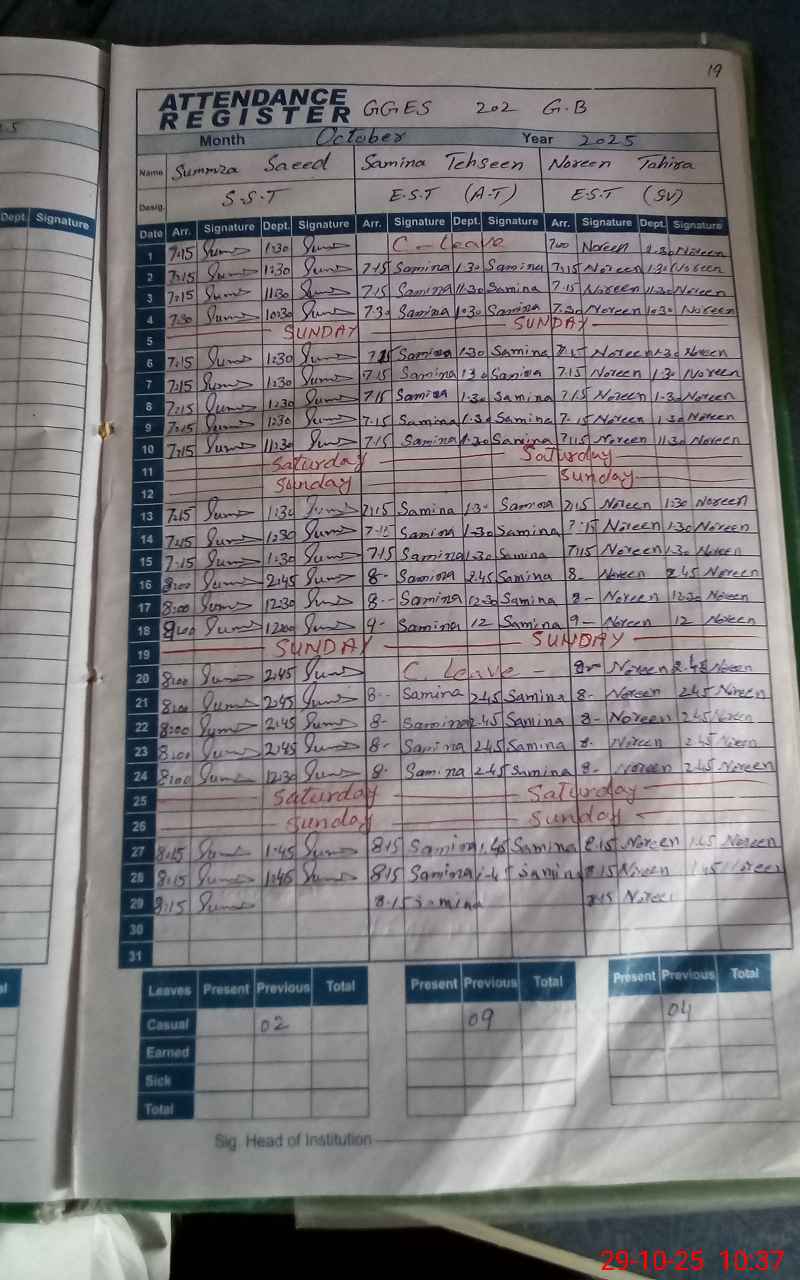 19
ATTENDANCE REGISTER GGES 202 G.B
Month October Year 2025
Name Summra Saeed Samina Tehseen Noreen Tahira
Desig. S.S.T E.S.T (A.T) E.S.T (SV)
Dept. Signature
Date Arr. Signature Dept. Signature Arr. Signature Dept. Signature Arr. Signature Dept. Signature
1 7:15 1:30 C-Leave 7:00 Noreen 1:30 Noreen
2 7:15 1:30 7:15 Samina 1:30 Samina 7:15 Noreen 1:30 Noreen
3 7:15 11:30 7:15 Samina 11:30 Samina 7:15 Noreen 11:30 Noreen
4 7:30 10:30 7:30 Samina 10:30 Samina 7:30 Noreen 10:30 Noreen
5 SUNDAY SUNDAY
6 7:15 1:30 7:15 Samina 1:30 Samina 7:15 Noreen 1:30 Noreen
7 7:15 1:30 7:15 Samina 1:30 Samina 7:15 Noreen 1:30 Noreen
8 7:15 1:30 7:15 Samina 1:30 Samina 7:15 Noreen 1:30 Noreen
9 7:15 1:30 7:15 Samina 1:30 Samina 7:15 Noreen 1:30 Noreen
10 7:15 11:30 7:15 Samina 11:30 Samina 7:15 Noreen 11:30 Noreen
11 Saturday Saturday
12 Sunday Sunday
13 7:15 1:30 7:15 Samina 1:30 Samina 7:15 Noreen 1:30 Noreen
14 7:15 1:30 7:15 Samina 1:30 Samina 7:15 Noreen 1:30 Noreen
15 7:15 1:30 7:15 Samina 1:30 Samina 7:15 Noreen 1:30 Noreen
16 8:00 2:45 8- Samina 2:45 Samina 8- Noreen 2:45 Noreen
17 8:00 12:30 8- Samina 12:30 Samina 8- Noreen 12:30 Noreen
18 9:00 12:00 9- Samina 12- Samina 9- Noreen 12 Noreen
19 SUNDAY SUNDAY
20 8:00 2:45 C. Leave - Noreen 2:45 Noreen
21 8:00 2:45 8- Samina 2:45 Samina 8- Noreen 2:45 Noreen
22 8:00 2:45 8- Samina 2:45 Samina 8- Noreen 2:45 Noreen
23 8:00 2:45 8- Samina 2:45 Samina 8- Noreen 2:45 Noreen
24 8:00 12:30 8- Samina 2:45 Samina 8- Noreen 2:45 Noreen
25 Saturday Saturday
26 Sunday Sunday
27 8:15 1:45 8:15 Samina 1:45 Samina 8:15 Noreen 1:45 Noreen
28 8:15 1:45 8:15 Samina 1:45 Samina 8:15 Noreen 1:45 Noreen
29 8:15 8:15 Samina 8:15 Noreen
30
31
Leaves Present Previous Total Present Previous Total Present Previous Total
Casual 02 09 04
Earned
Sick
Total
Sig. Head of Institution
29-10-25 10:37